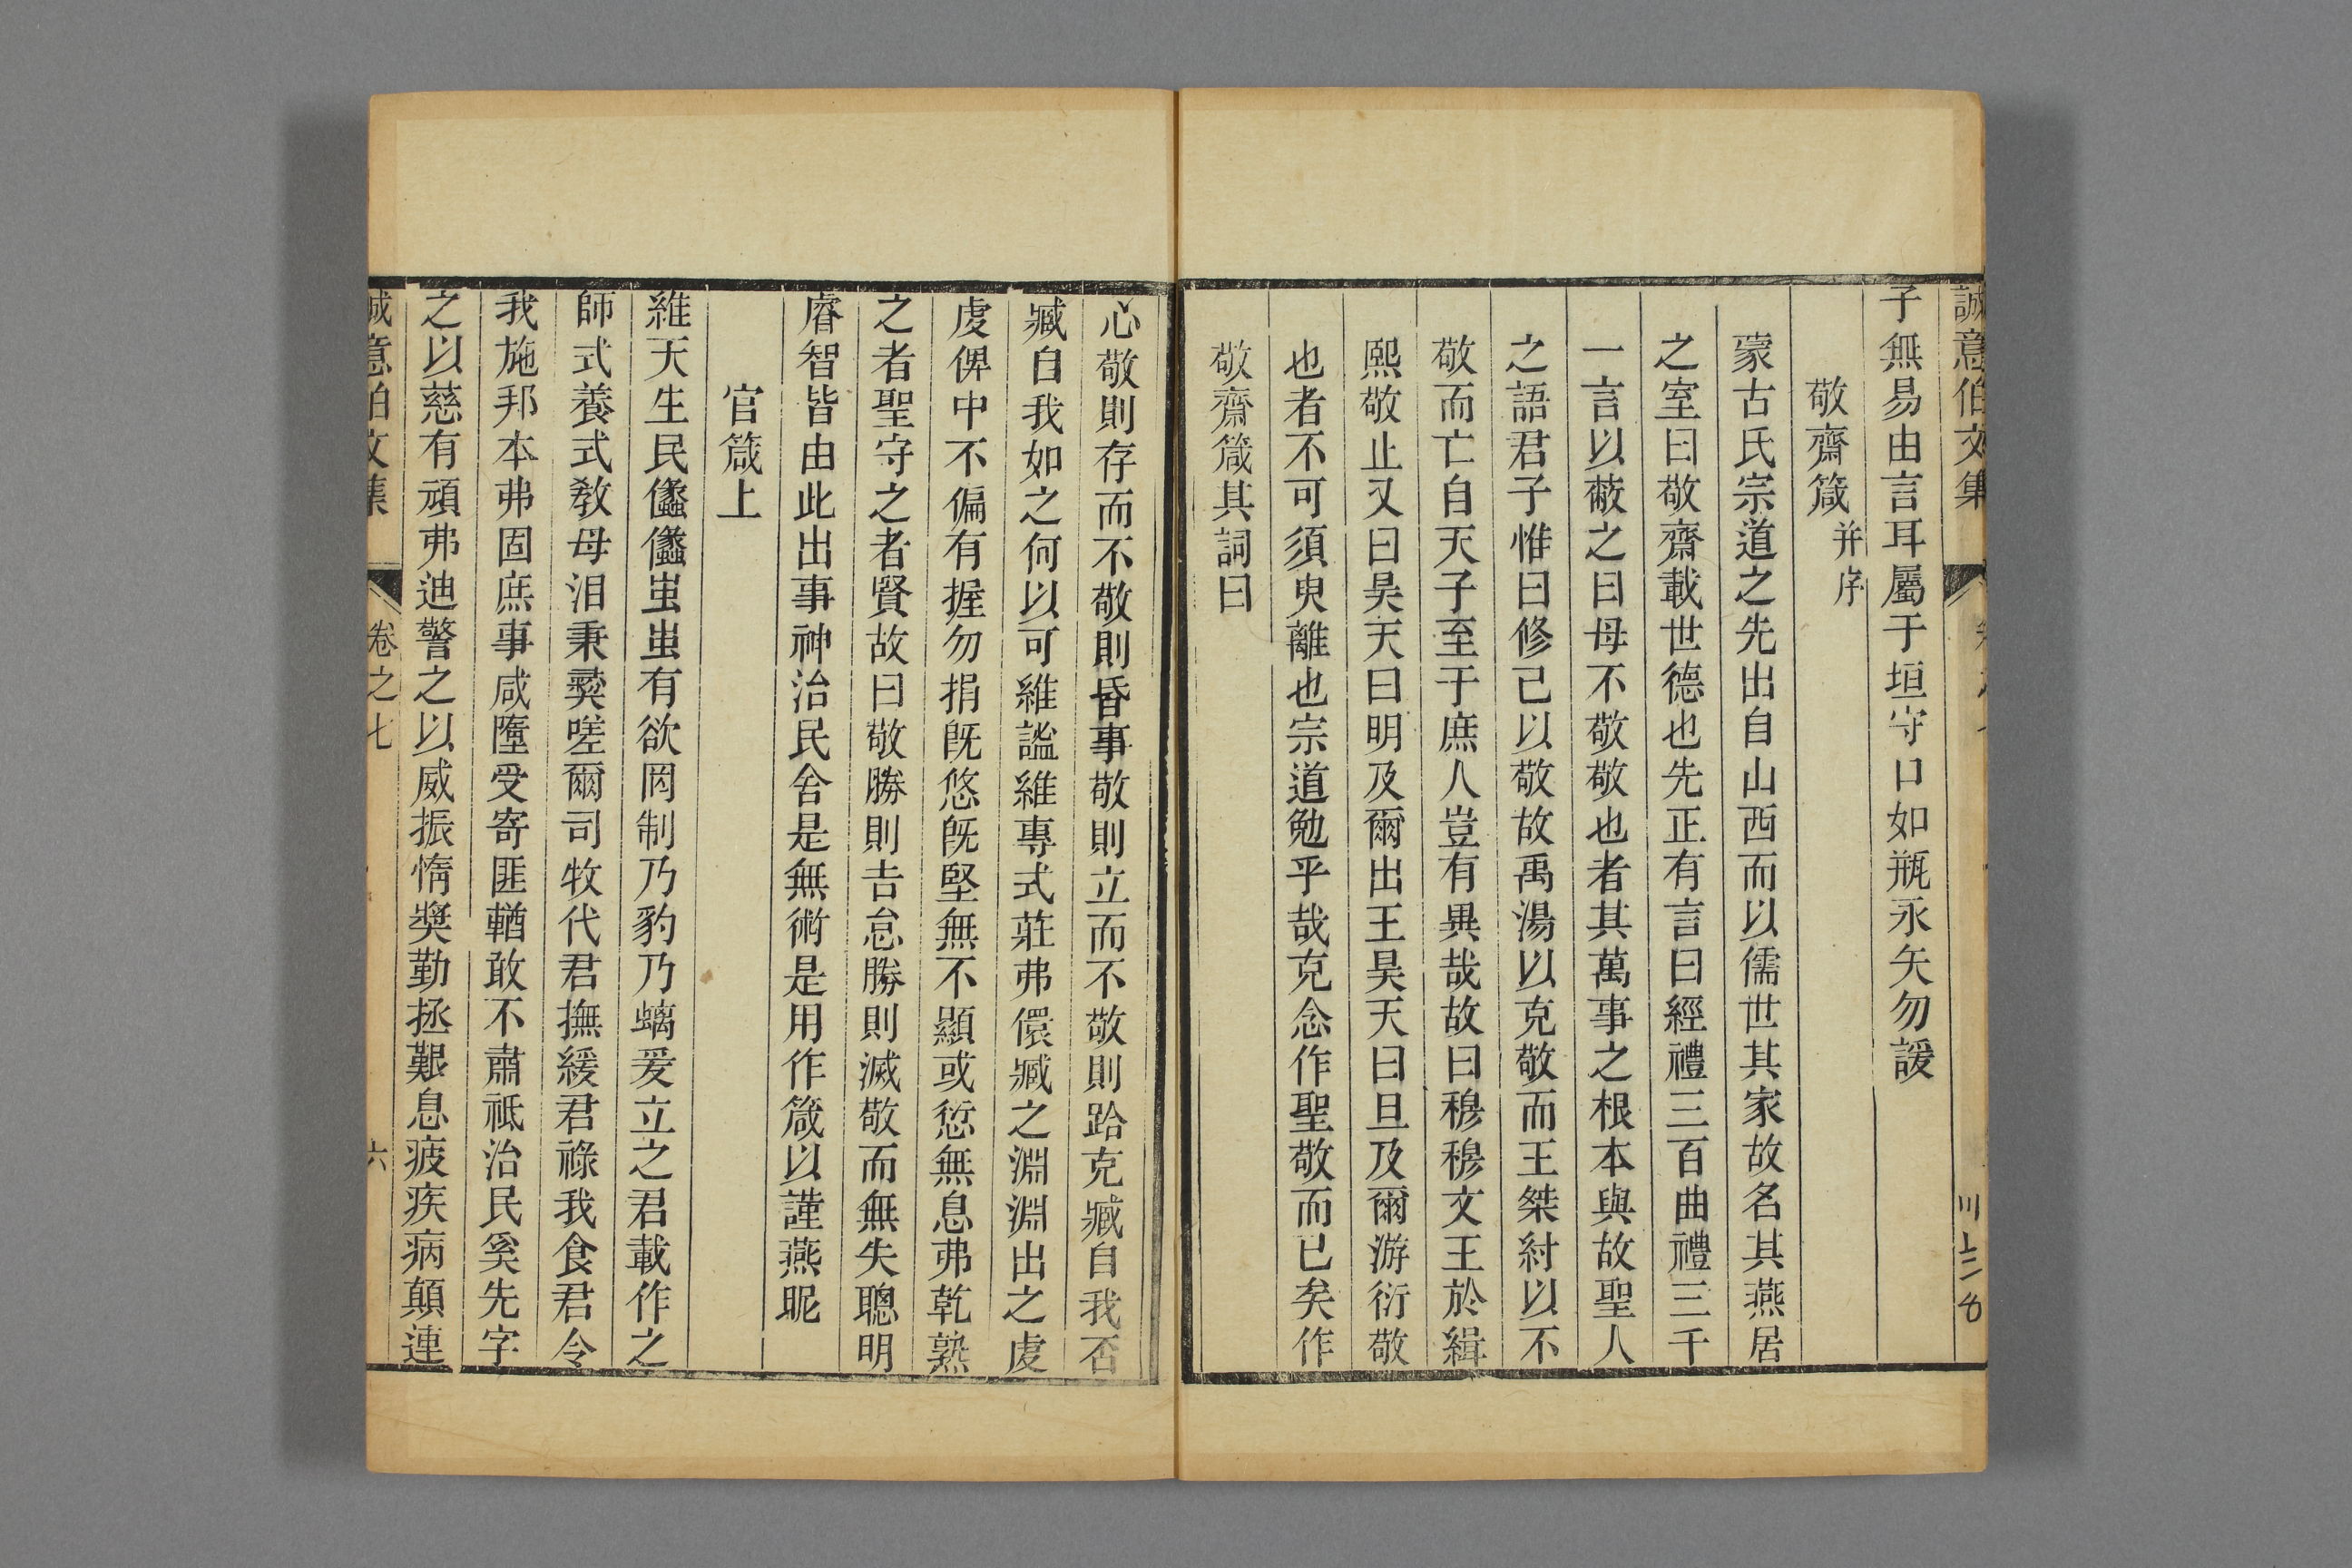 誠意伯文集
子無易由言耳屬于垣守口如瓶永矢勿諼
敬齋箴并序
蒙古氏宗道之先出自山西而以儒世其家故名其燕居
之室曰敬齋載世德也先正有言曰經禮三百曲禮三千
一言以蔽之曰毋不敬敬也者其萬事之根本與故聖人
之語君子惟曰修己以敬故禹湯以克敬而王桀紂以不
敬而亡自天子至于庶人豈有異哉故曰穆穆文王於緝
熙敬止又曰昊天曰明及爾出王昊天曰旦及爾游衍敬
也者不可須臾離也宗道勉乎哉克念作聖敬而已矣作
敬齋箴其詞曰
心敬則存而不敬則昏事敬則立而不敬則跲克臧自我否
臧自我如之何以可維謐維專式莊弗儇臧之淵淵出之虔
虔俾中不偏有握勿捐旣悠旣堅無不顯或愆無息弗乾熟
之者聖守之者賢故曰敬勝則吉怠勝則滅敬而無失聰明
睿智皆由此出事神治民舍是無術是用作箴以謹燕昵
官箴上
維天生民儘儘蚩蚩有欲罔制乃豹乃螭爰立之君載作之
師式養式敎毋汨秉彛嗟爾司牧代君撫緩君祿我食君令
我施邦本弗固庶事咸隳受寄匪輶敢不肅祗治民奚先字
之以慈有頑弗迪警之以威振惰奬勤拯艱息疲疾病顛連
誠意伯文集
卷之七
六